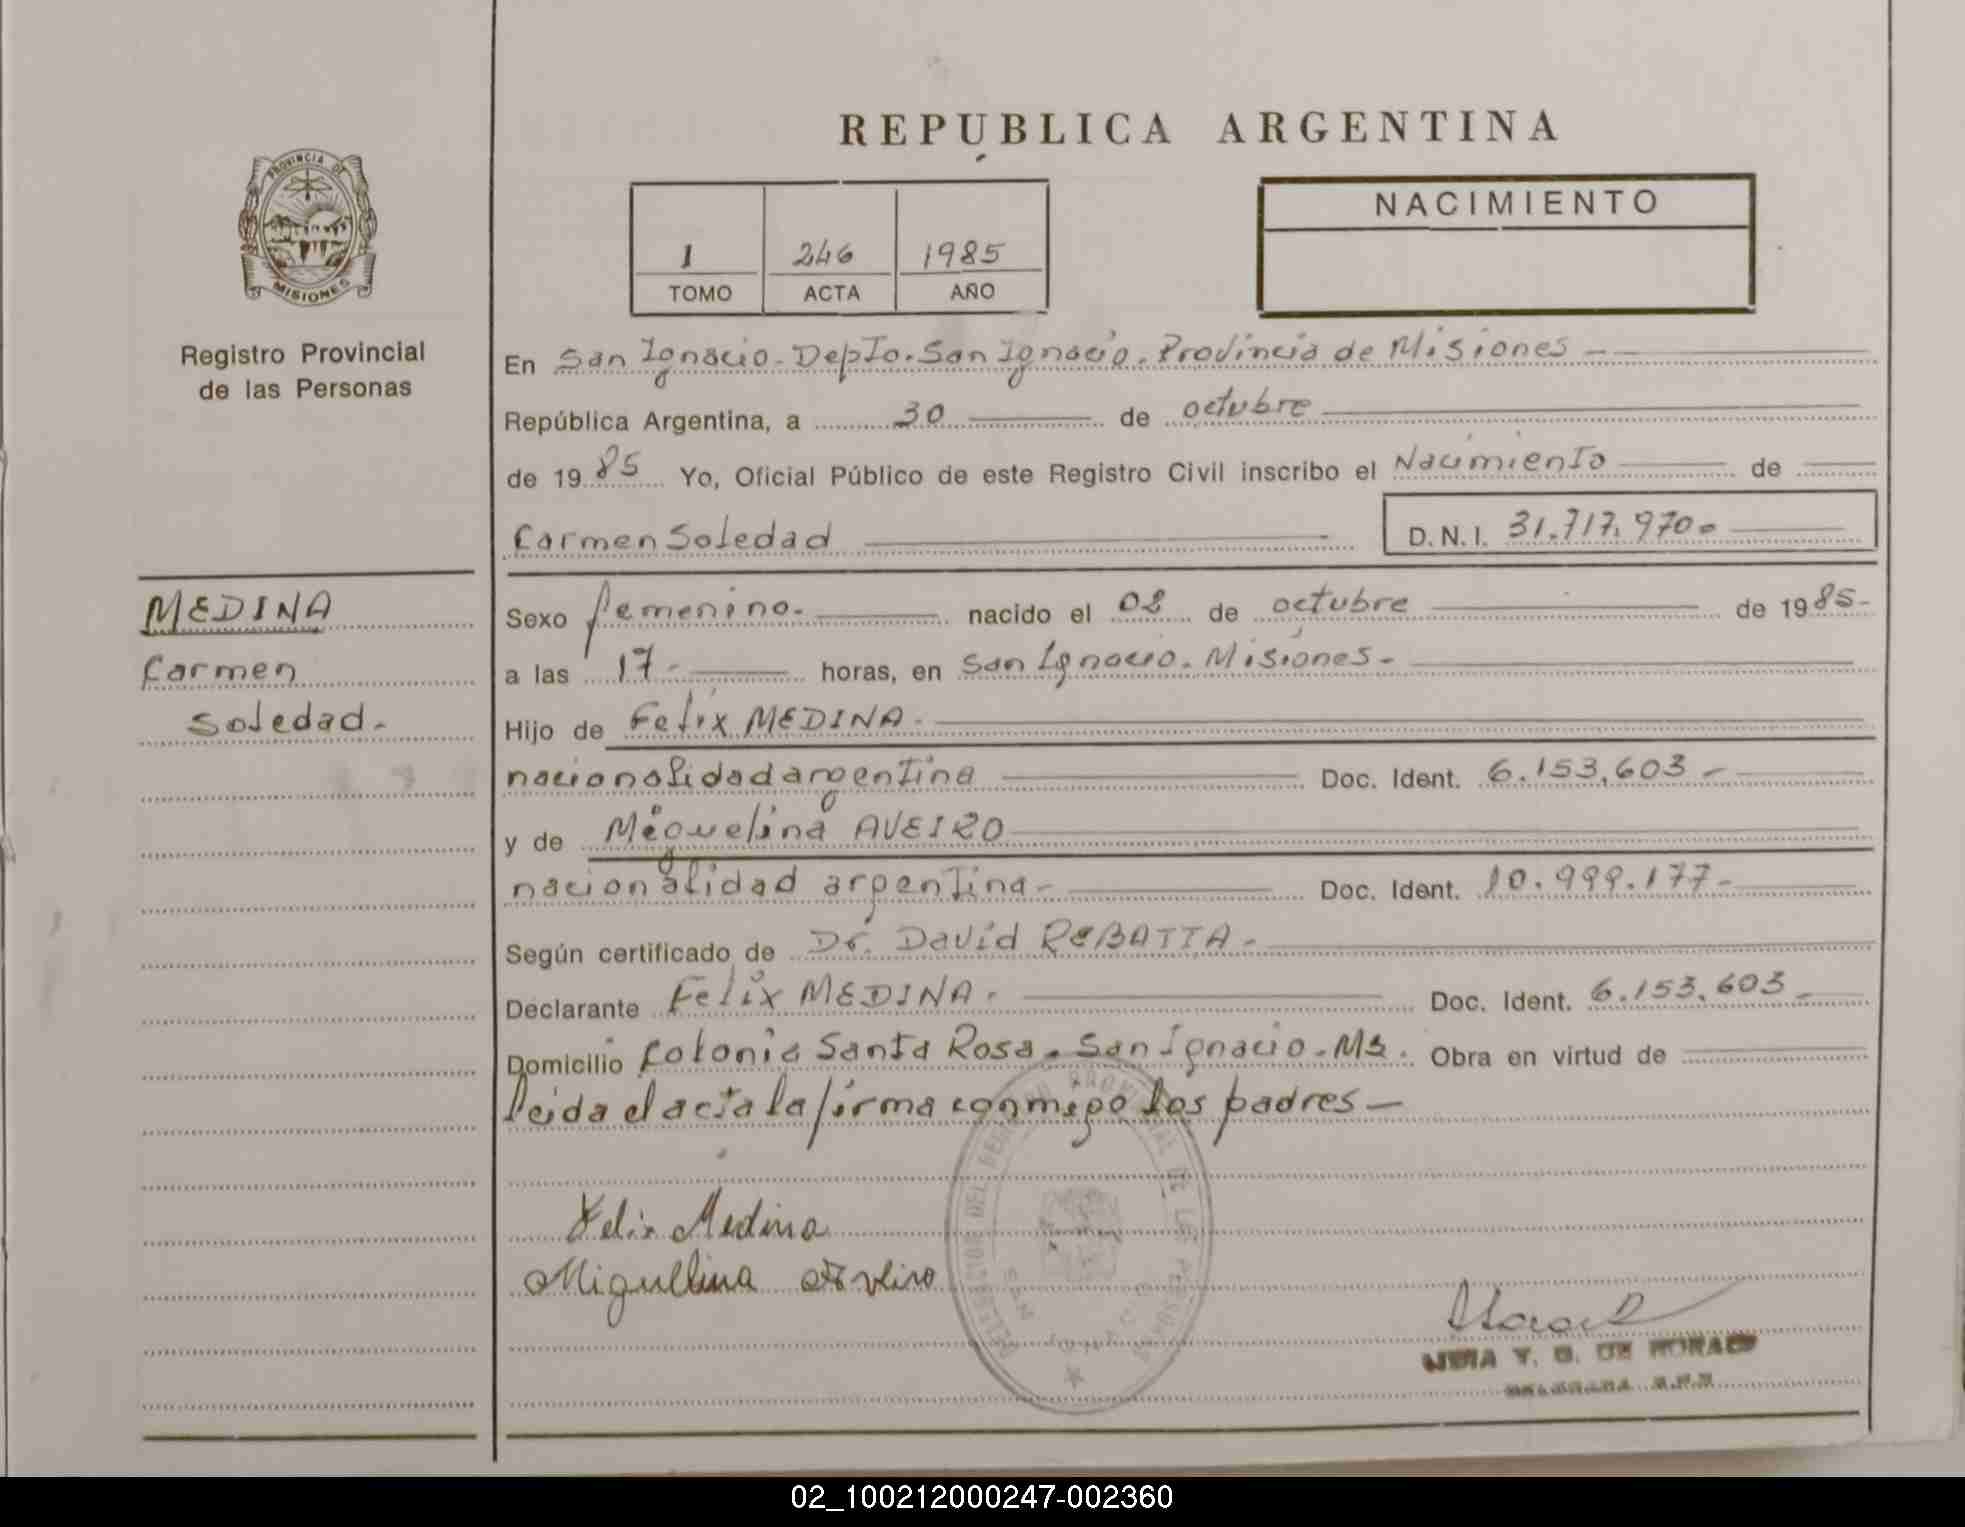 REPUBLICA ARGENTINA
PROVINCIA DE
MISIONES
Registro Provincial
de las Personas
1 246 1985
TOMO ACTA AÑO
NACIMIENTO
En San Ignacio. Depto. San Ignacio. Provincia de Misiones
República Argentina, a 30 de octubre
de 1985 Yo, Oficial Público de este Registro Civil inscribo el Nacimiento de
Carmen Soledad D.N.I. 31.717.970
MEDINA
Carmen
Soledad.
Sexo femenino. nacido el 02 de octubre de 1985
a las 17 horas, en San Ignacio. Misiones
Hijo de Felix MEDINA
nacionalidad argentina Doc. Ident. 6.153.603
y de Miguelina AVEIRO
nacionalidad argentina Doc. Ident. 10.999.177
Según certificado de Dr. David REBATTA
Declarante Felix MEDINA. Doc. Ident. 6.153.603
Domicilio Colonia Santa Rosa. San Ignacio. Ms. Obra en virtud de
leida el acta la firma conmigo los padres
Felix Medina
Miguelina Aveiro
Y. G. DE MORAES
02_100212000247-002360